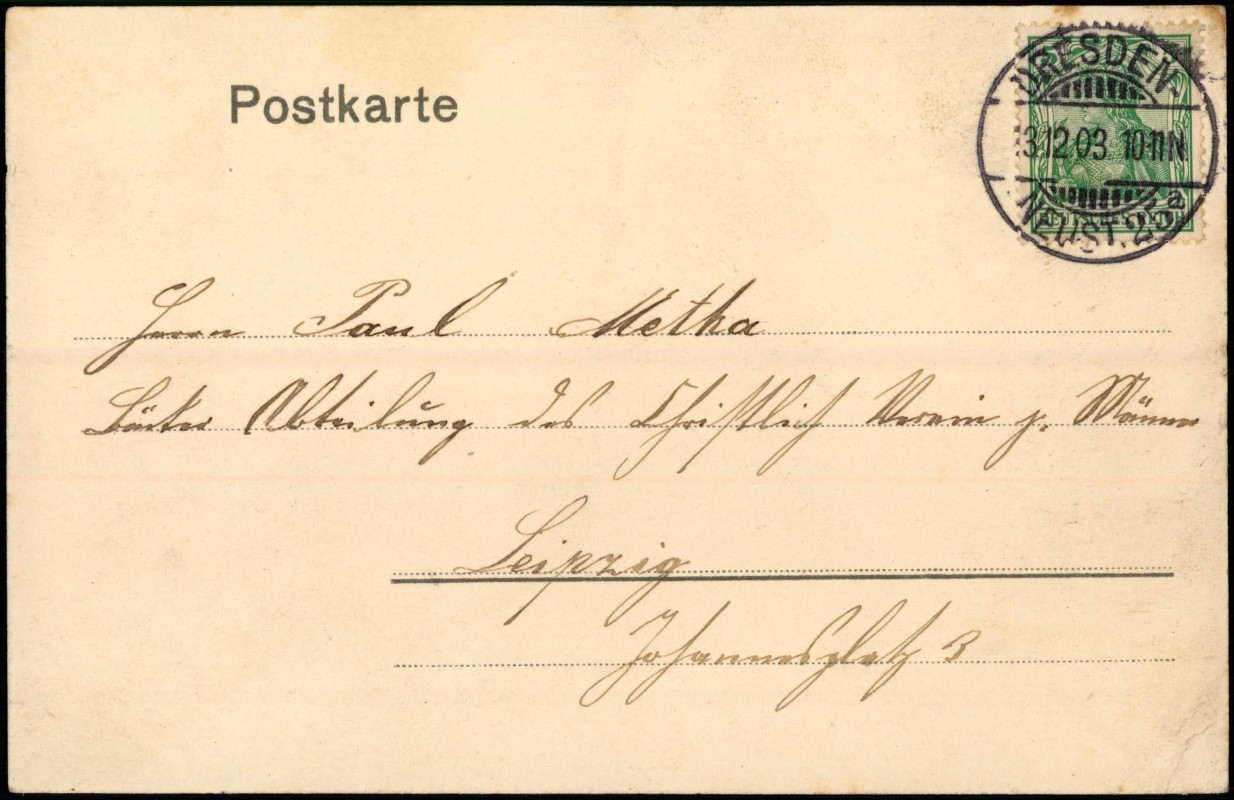 Postkarte
DRESDEN-
3.12.03. 10-11N.
a
NEUST. 25
DEUTSCHES REICH
Herrn Paul Metha
Bäcker Abteilung des Christlich Verein j. Männer
Leipzig
Johannesplatz 3